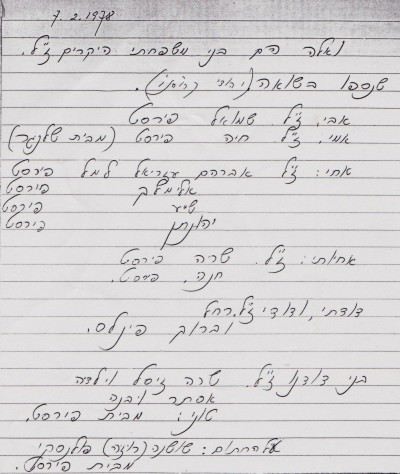 7.2.1978
ואלה הם בני משפחתי היקרים ז"ל.
שנספו בשואה
אבי. ז"ל. שמואל פירסט
אמי. ז"ל חיה פירסט (מבית שלנגר)
אחי: ז"ל אברהם עזריאל למל פירסט
אלימלך פירסט
שייע פירסט
יהונתן פירסט
אחותי: ז"ל. שרה פירסט
חנה. פירסט.
דודתי, ודודי ז"ל. רחל
וברוך פינלס.
בני דודנו ז"ל. שרה זיסל וילדה
אסתר ויבנה
טוני: מבית פירסט.
על החתום: שושנה (רוזה) פולנסקי
מבית פירסט.